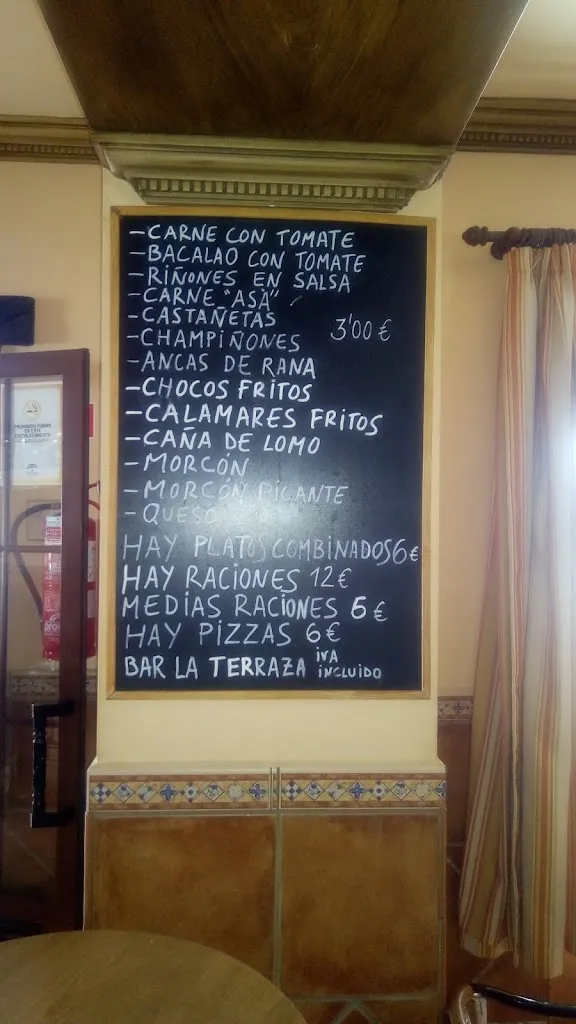 -CARNE CON TOMATE
-BACALAO CON TOMATE
-RIÑONES EN SALSA
-CARNE "ASÁ"
-CASTAÑETAS
3'00 €
-CHAMPIÑONES
-ANCAS DE RANA
-CHOCOS FRITOS
-CALAMARES FRITOS
-CAÑA DE LOMO
-MORCÓN
-MORCÓN PICANTE
-QUESO
HAY PLATOS COMBINADOS 6€
HAY RACIONES 12€
MEDIAS RACIONES 6€
HAY PIZZAS 6€
BAR LA TERRAZA IVA INCLUIDO
PROHIBIDO FUMAR
EN ESTE
ESTABLECIMIENTO